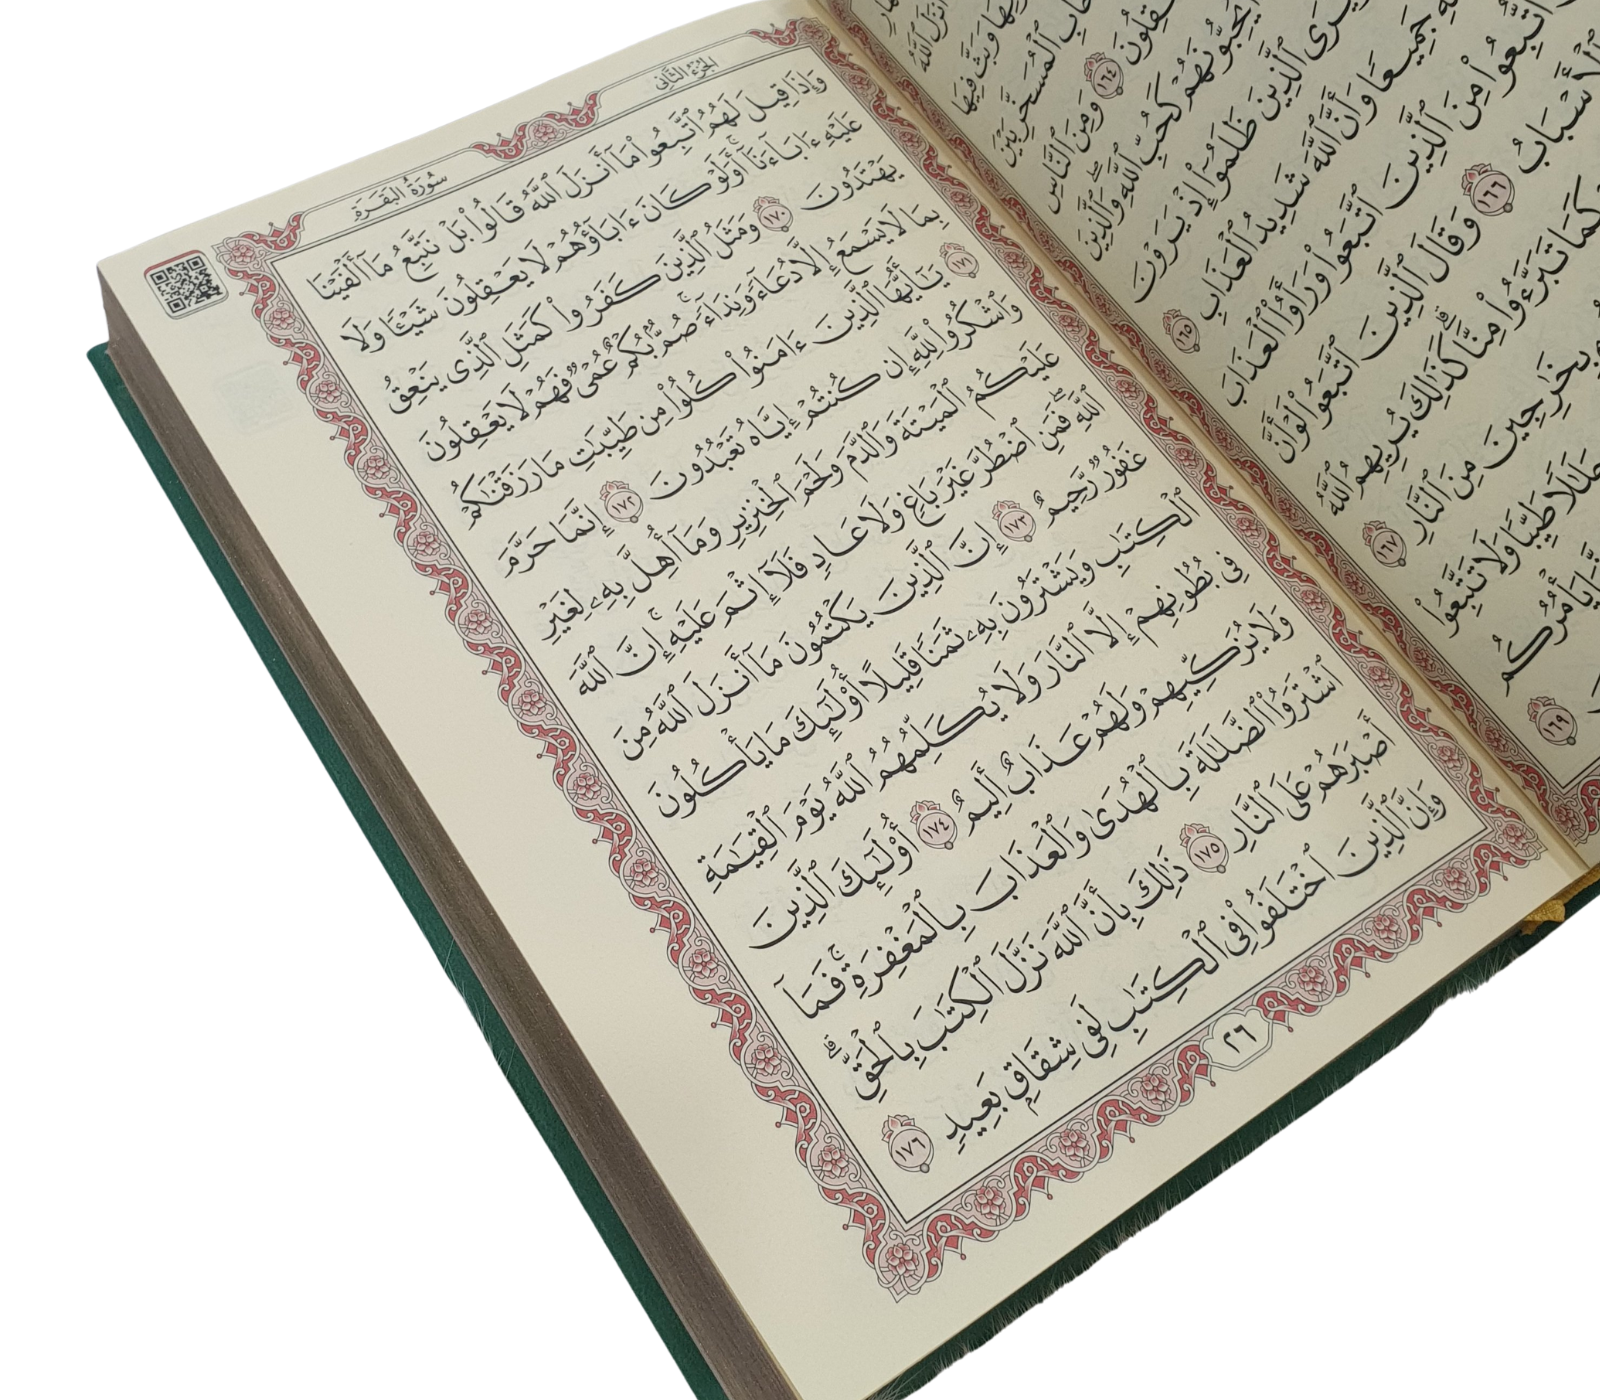 أَنزَلَ ٱللَّهُ
وَبَثَّ فِيهَا
ٱلْمُسَخَّرِ بَيْنَ
١٦٤ وَمِنَ ٱلنَّاسِ
يُحِبُّونَهُمْ كَحُبِّ ٱللَّهِ ۖ وَٱلَّذِينَ
ٱلَّذِينَ ظَلَمُوٓا۟ إِذْ يَرَوْنَ
جَمِيعًا وَأَنَّ ٱللَّهَ شَدِيدُ ٱلْعَذَابِ ١٦٥
ٱتُّبِعُوا۟ مِنَ ٱلَّذِينَ ٱتَّبَعُوا۟ وَرَأَوُا۟ ٱلْعَذَابَ
ٱلْأَسْبَابُ ١٦٦ وَقَالَ ٱلَّذِينَ ٱتَّبَعُوا۟ لَوْ أَنَّ
كَمَا تَبَرَّءُوا۟ مِنَّا ۗ كَذَٰلِكَ يُرِيهِمُ ٱللَّهُ
بِخَٰرِجِينَ مِنَ ٱلنَّارِ ١٦٧
حَلَٰلًا طَيِّبًا وَلَا تَتَّبِعُوا۟
يَأْمُرُكُم
١٦٩
الجُزْءُ الثَّانِي
سُورَةُ البَقَرَةِ
وَإِذَا قِيلَ لَهُمُ ٱتَّبِعُوا۟ مَآ أَنزَلَ ٱللَّهُ قَالُوا۟ بَلْ نَتَّبِعُ مَآ أَلْفَيْنَا
عَلَيْهِ ءَابَآءَنَآ ۗ أَوَلَوْ كَانَ ءَابَآؤُهُمْ لَا يَعْقِلُونَ شَيْـًٔا وَلَا
يَهْتَدُونَ ١٧٠ وَمَثَلُ ٱلَّذِينَ كَفَرُوا۟ كَمَثَلِ ٱلَّذِى يَنْعِقُ
بِمَا لَا يَسْمَعُ إِلَّا دُعَآءً وَنِدَآءً ۚ صُمٌّۢ بُكْمٌ عُمْىٌ فَهُمْ لَا يَعْقِلُونَ
١٧١ يَٰٓأَيُّهَا ٱلَّذِينَ ءَامَنُوا۟ كُلُوا۟ مِن طَيِّبَٰتِ مَا رَزَقْنَٰكُمْ
وَٱشْكُرُوا۟ لِلَّهِ إِن كُنتُمْ إِيَّاهُ تَعْبُدُونَ ١٧٢ إِنَّمَا حَرَّمَ
عَلَيْكُمُ ٱلْمَيْتَةَ وَٱلدَّمَ وَلَحْمَ ٱلْخِنزِيرِ وَمَآ أُهِلَّ بِهِۦ لِغَيْرِ
ٱللَّهِ ۖ فَمَنِ ٱضْطُرَّ غَيْرَ بَاغٍ وَلَا عَادٍ فَلَآ إِثْمَ عَلَيْهِ ۚ إِنَّ ٱللَّهَ
غَفُورٌ رَّحِيمٌ ١٧٣ إِنَّ ٱلَّذِينَ يَكْتُمُونَ مَآ أَنزَلَ ٱللَّهُ مِنَ
ٱلْكِتَٰبِ وَيَشْتَرُونَ بِهِۦ ثَمَنًا قَلِيلًا أُو۟لَٰٓئِكَ مَا يَأْكُلُونَ
فِى بُطُونِهِمْ إِلَّا ٱلنَّارَ وَلَا يُكَلِّمُهُمُ ٱللَّهُ يَوْمَ ٱلْقِيَٰمَةِ
وَلَا يُزَكِّيهِمْ وَلَهُمْ عَذَابٌ أَلِيمٌ ١٧٤ أُو۟لَٰٓئِكَ ٱلَّذِينَ
ٱشْتَرَوُا۟ ٱلضَّلَٰلَةَ بِٱلْهُدَىٰ وَٱلْعَذَابَ بِٱلْمَغْفِرَةِ ۚ فَمَآ
أَصْبَرَهُمْ عَلَى ٱلنَّارِ ١٧٥ ذَٰلِكَ بِأَنَّ ٱللَّهَ نَزَّلَ ٱلْكِتَٰبَ بِٱلْحَقِّ ۗ
وَإِنَّ ٱلَّذِينَ ٱخْتَلَفُوا۟ فِى ٱلْكِتَٰبِ لَفِى شِقَاقٍۭ بَعِيدٍ ١٧٦
٢٦